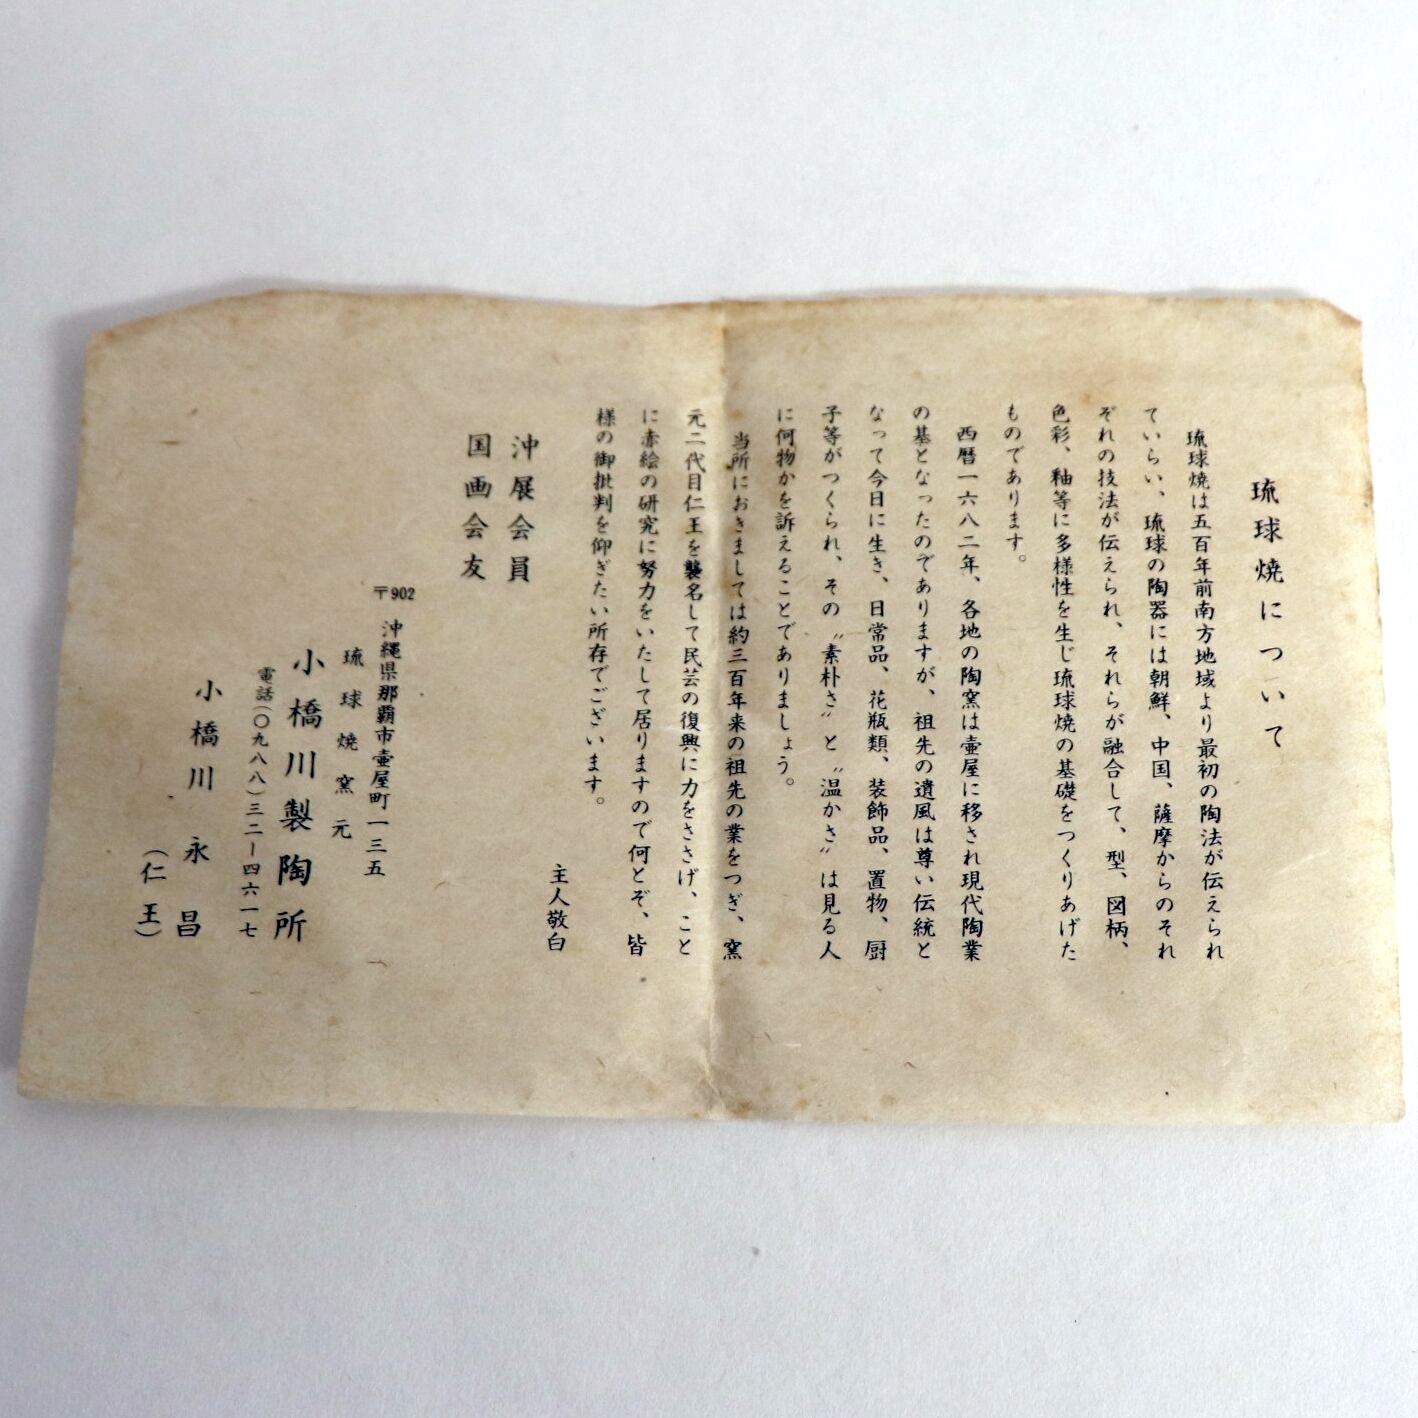 琉球焼について
琉球焼は五百年前南方地域より最初の陶法が伝えられ
ていらい、琉球の陶器には朝鮮、中国、薩摩からのそれ
ぞれの技法が伝えられ、それらが融合して、型、図柄、
色彩、釉等に多様性を生じ琉球焼の基礎をつくりあげた
ものであります。
西暦一六八二年、各地の陶窯は壷屋に移され現代陶業
の基となったのでありますが、祖先の遺風は尊い伝統と
なって今日に生き、日常品、花瓶類、装飾品、置物、厨
子等がつくられ、その〝素朴さ〟と〝温かさ〟は見る人
に何物かを訴えることでありましょう。
当所におきましては約三百年来の祖先の業をつぎ、窯
元二代目仁王を襲名して民芸の復興に力をささげ、こと
に赤絵の研究に努力をいたして居りますので何とぞ、皆
様の御批判を仰ぎたい所存でございます。
主人敬白
沖展会員
国画会友
〒902 沖縄県那覇市壷屋町一三五
琉球焼窯元
小橋川製陶所
電話(〇九八八)三二ー四六一七
小橋川 永昌
(仁王)